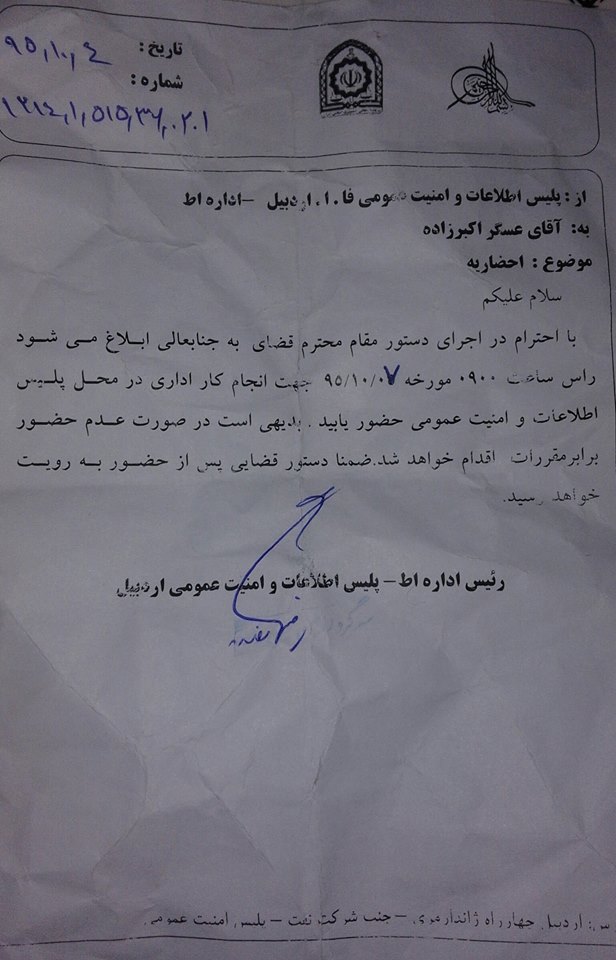 تاریخ : ۹۵,۱۰,۴
شماره :
از : پلیس اطلاعات و امنیت عمومی فا.ا. اردبیل -اداره اط
به: آقای عسگر اکبرزاده
موضوع : احضاریه
سلام علیکم
با احترام در اجرای دستور مقام محترم قضای به جنابعالی ابلاغ می شود
راس ساعت ۰۹۰۰ مورخه ۹۵/۱۰/۰۷ جهت انجام کار اداری در محل پلیس
اطلاعات و امنیت عمومی حضور یابید . بدیهی است در صورت عدم حضور
برابرمقررات اقدام خواهد شد.ضمنا دستور قضایی پس از حضور به رویت
خواهد رسید.
رئیس اداره اط– پلیس اطلاعات و امنیت عمومی اردبیل
اردبیل چهارراه ژاندارمری – جنب شرکت نفت – پلیس امنیت عمومی